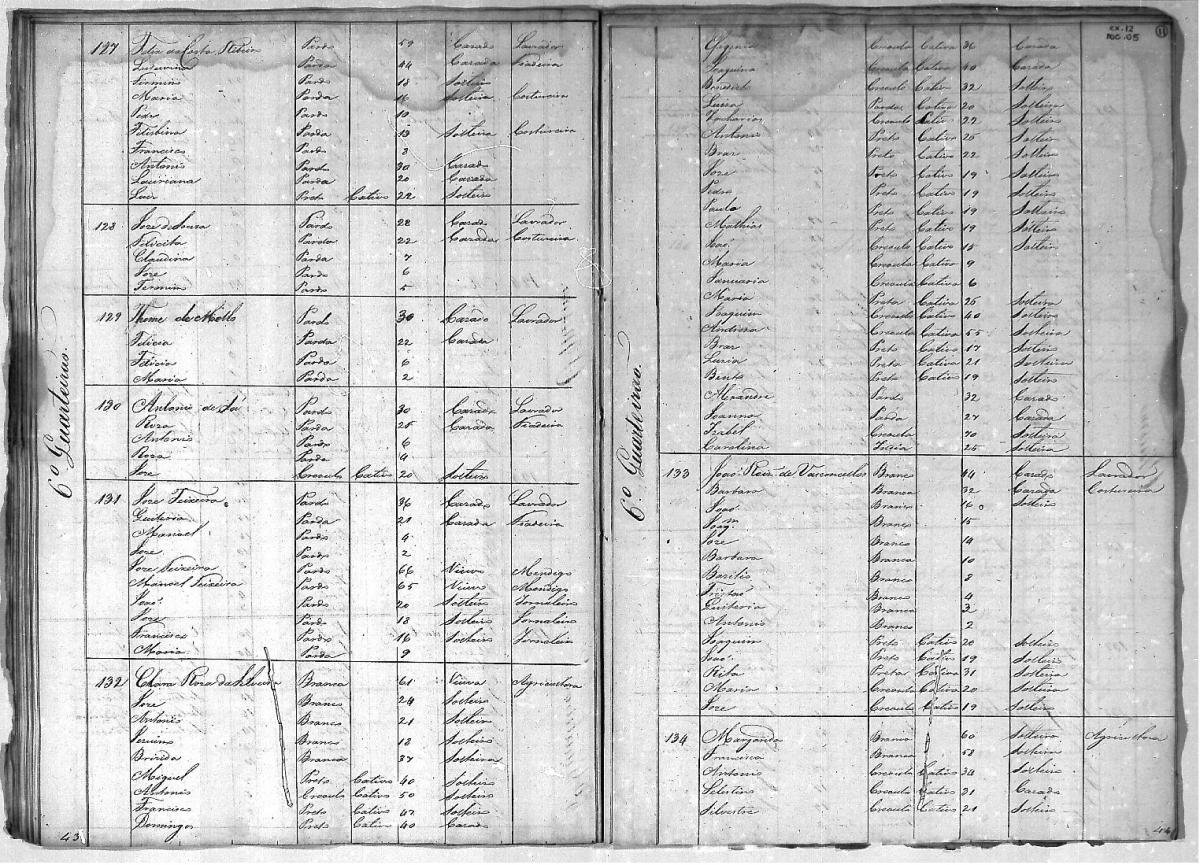 6º Quarteirão.
127 Felix da Costa Ribeiro Pardo 59 Cazado Lavrador
Ludovina Parda 44 Cazada Fiadeira
Firmino Pardo 18 Solteiro
Maria Parda 16 Solteira Costureira
Pardo 10
Felisbina Parda 13 Solteira Costureira
Francisco Pardo 3
Antonio Pardo 30 Cazado
Lauriana Parda 20 Cazada
Luis Preto Cativo 22 Solteiro
128 Joze de Souza Pardo 28 Cazado Lavrador
Felicita Parda 22 Cazada Costureira
Claudina Parda 7
Joze Pardo 6
Firmino Pardo 5
129 Thome de Mello Pardo 30 Cazado Lavrador
Felicia Parda 22 Cazada
Felicia Parda 6
Maria Parda 2
130 Antonio de Sá Pardo 30 Cazado Lavrador
Roza Parda 25 Cazada Fiadeira
Antonio Pardo 6
Roza Parda 4
Joze Creoulo Cativo 20 Solteiro
131 Joze Teixeira Pardo 36 Cazado Lavrador
Quiteria Parda 21 Cazada Fiadeira
Manoel Pardo 4
Joze Pardo 2
Joze Teixeira Pardo 66 Viuvo Mendigo
Manoel Teixeira Pardo 65 Viuvo Mendigo
Joaõ Pardo 20 Solteiro Jornaleiro
Joze Pardo 18 Solteiro Jornaleiro
Francisco Pardo 16 Solteiro Jornaleiro
Maria Parda 9
132 Clara Roza da Silveira Branca 61 Viuva Agricultora
Joze Branco 24 Solteiro
Antonio Branco 21 Solteiro
Branco 18 Solteiro
Brizida Branca 37 Solteira
Miguel Preto Cativo 40 Solteiro
Antonio Creoulo Cativo 50 Solteiro
Francisco Preto Cativo 42 Solteiro
Domingos Preto Cativo 40 Cazado
43
EX. 12
DOC. 05
11
6º Quarteirão.
Efigenia Creoula Cativa 36 Cazada
Joaquina Creoula Cativa 40 Cazada
Benedicto Creoulo Cativo 32 Solteiro
Luiza Parda Cativa 20 Solteira
Zacharias Creoulo Cativo 22 Solteiro
Antonio Preto Cativo 25 Solteiro
Braz Preto Cativo 22 Solteiro
Joze Preto Cativo 19 Solteiro
Pedro Preto Cativo 19 Solteiro
Paulo Preto Cativo 19 Solteiro
Mathias Preto Cativo 19 Solteiro
Joaõ Creoulo Cativo 15 Solteiro
Maria Creoula Cativa 9
Januaria Creoula Cativa 6
Maria Preta Cativa 25 Solteira
Joaquim Creoulo Cativo 40 Solteiro
Andreza Creoula Cativa 55 Solteira
Braz Preto Cativo 17 Solteiro
Luzia Preta Cativa 21 Solteira
Bento Preto Cativo 19 Solteiro
Alexandre Pardo 32 Cazado
Joanna Parda 27 Cazada
Izabel Creoula 70 Solteira
Carolina 25 Solteira
133 Joaõ Reis de Vasconcellos Branco 44 Cazado Lavrador
Barbara Branca 32 Cazada Costureira
Joaõ Branco 16 Solteiro
Joaqᵐ Branco 15
Joze Branco 14
Barbara Branca 10
Bazilio Branco 8
Tristaõ Branco 4
Quiteria Branca 3
Antonio Branco 2
Joaquim Preto Cativo 20 Solteiro
Joaõ Preto Cativo 19 Solteiro
Rita Preta Cativa 31 Solteira
Maria Creoula Cativa 20 Solteira
Joze Creoulo Cativo 19 Solteiro
134 Margarida Branca 60 Solteira Agricultora
Francisca Branca 58 Solteira
Antonio Creoulo Cativo 34 Solteiro
Celestino Creoulo Cativo 31 Cazado
Silvestre Creoulo Cativo 21 Solteiro
44